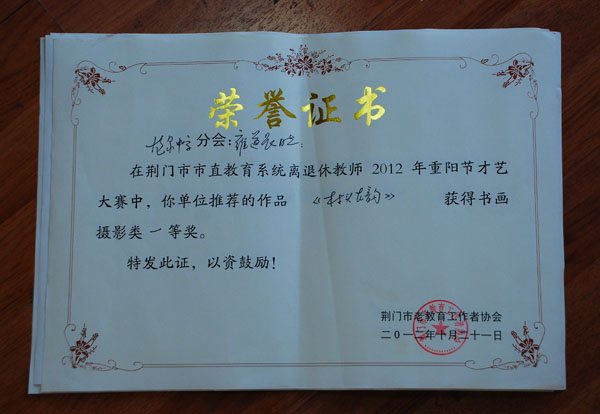 荣誉证书
分会:
在荆门市市直教育系统离退休教师 2012 年重阳节才艺
大赛中,你单位推荐的作品《》获得书画
摄影类 一 等奖。
特发此证,以资鼓励!
荆门市老教育工作者协会
二〇一二年十月二十一日